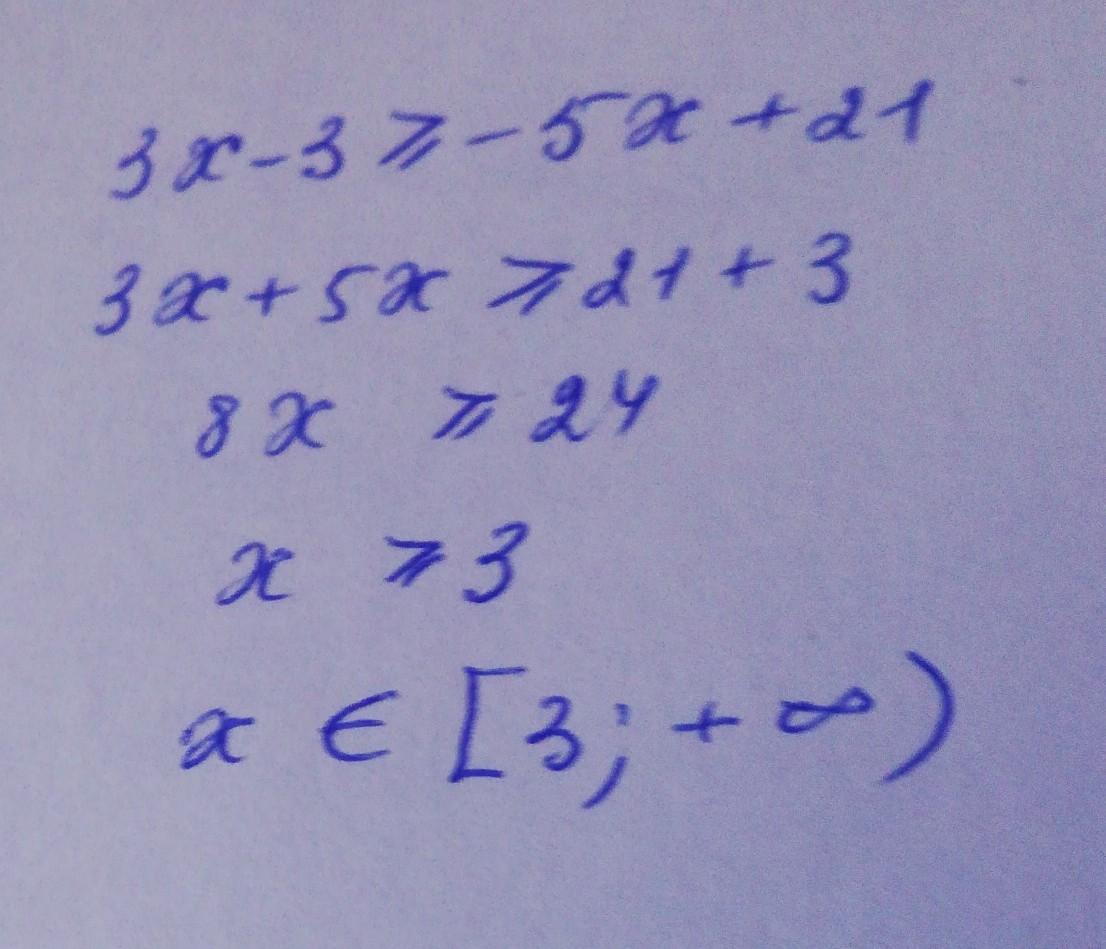 3x-3⩾-5x+21
3x+5x⩾21+3
8x ⩾24
x ⩾3
x ∈ [3;+∞)